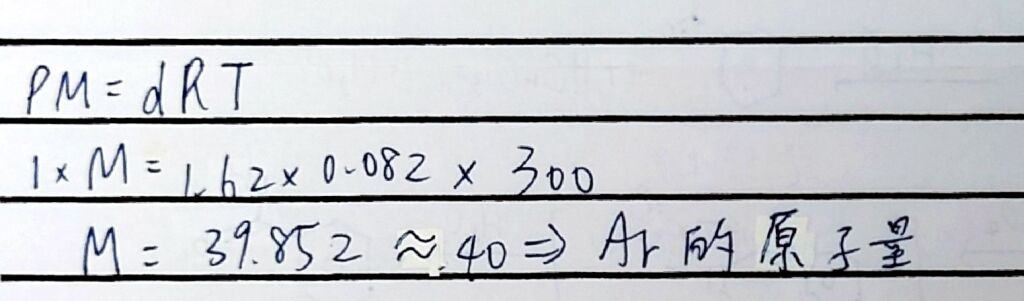 PM = dRT
1 × M = 1.62 × 0.082 × 300
M = 39.852 ≈ 40 ⇒ Ar 的原子量